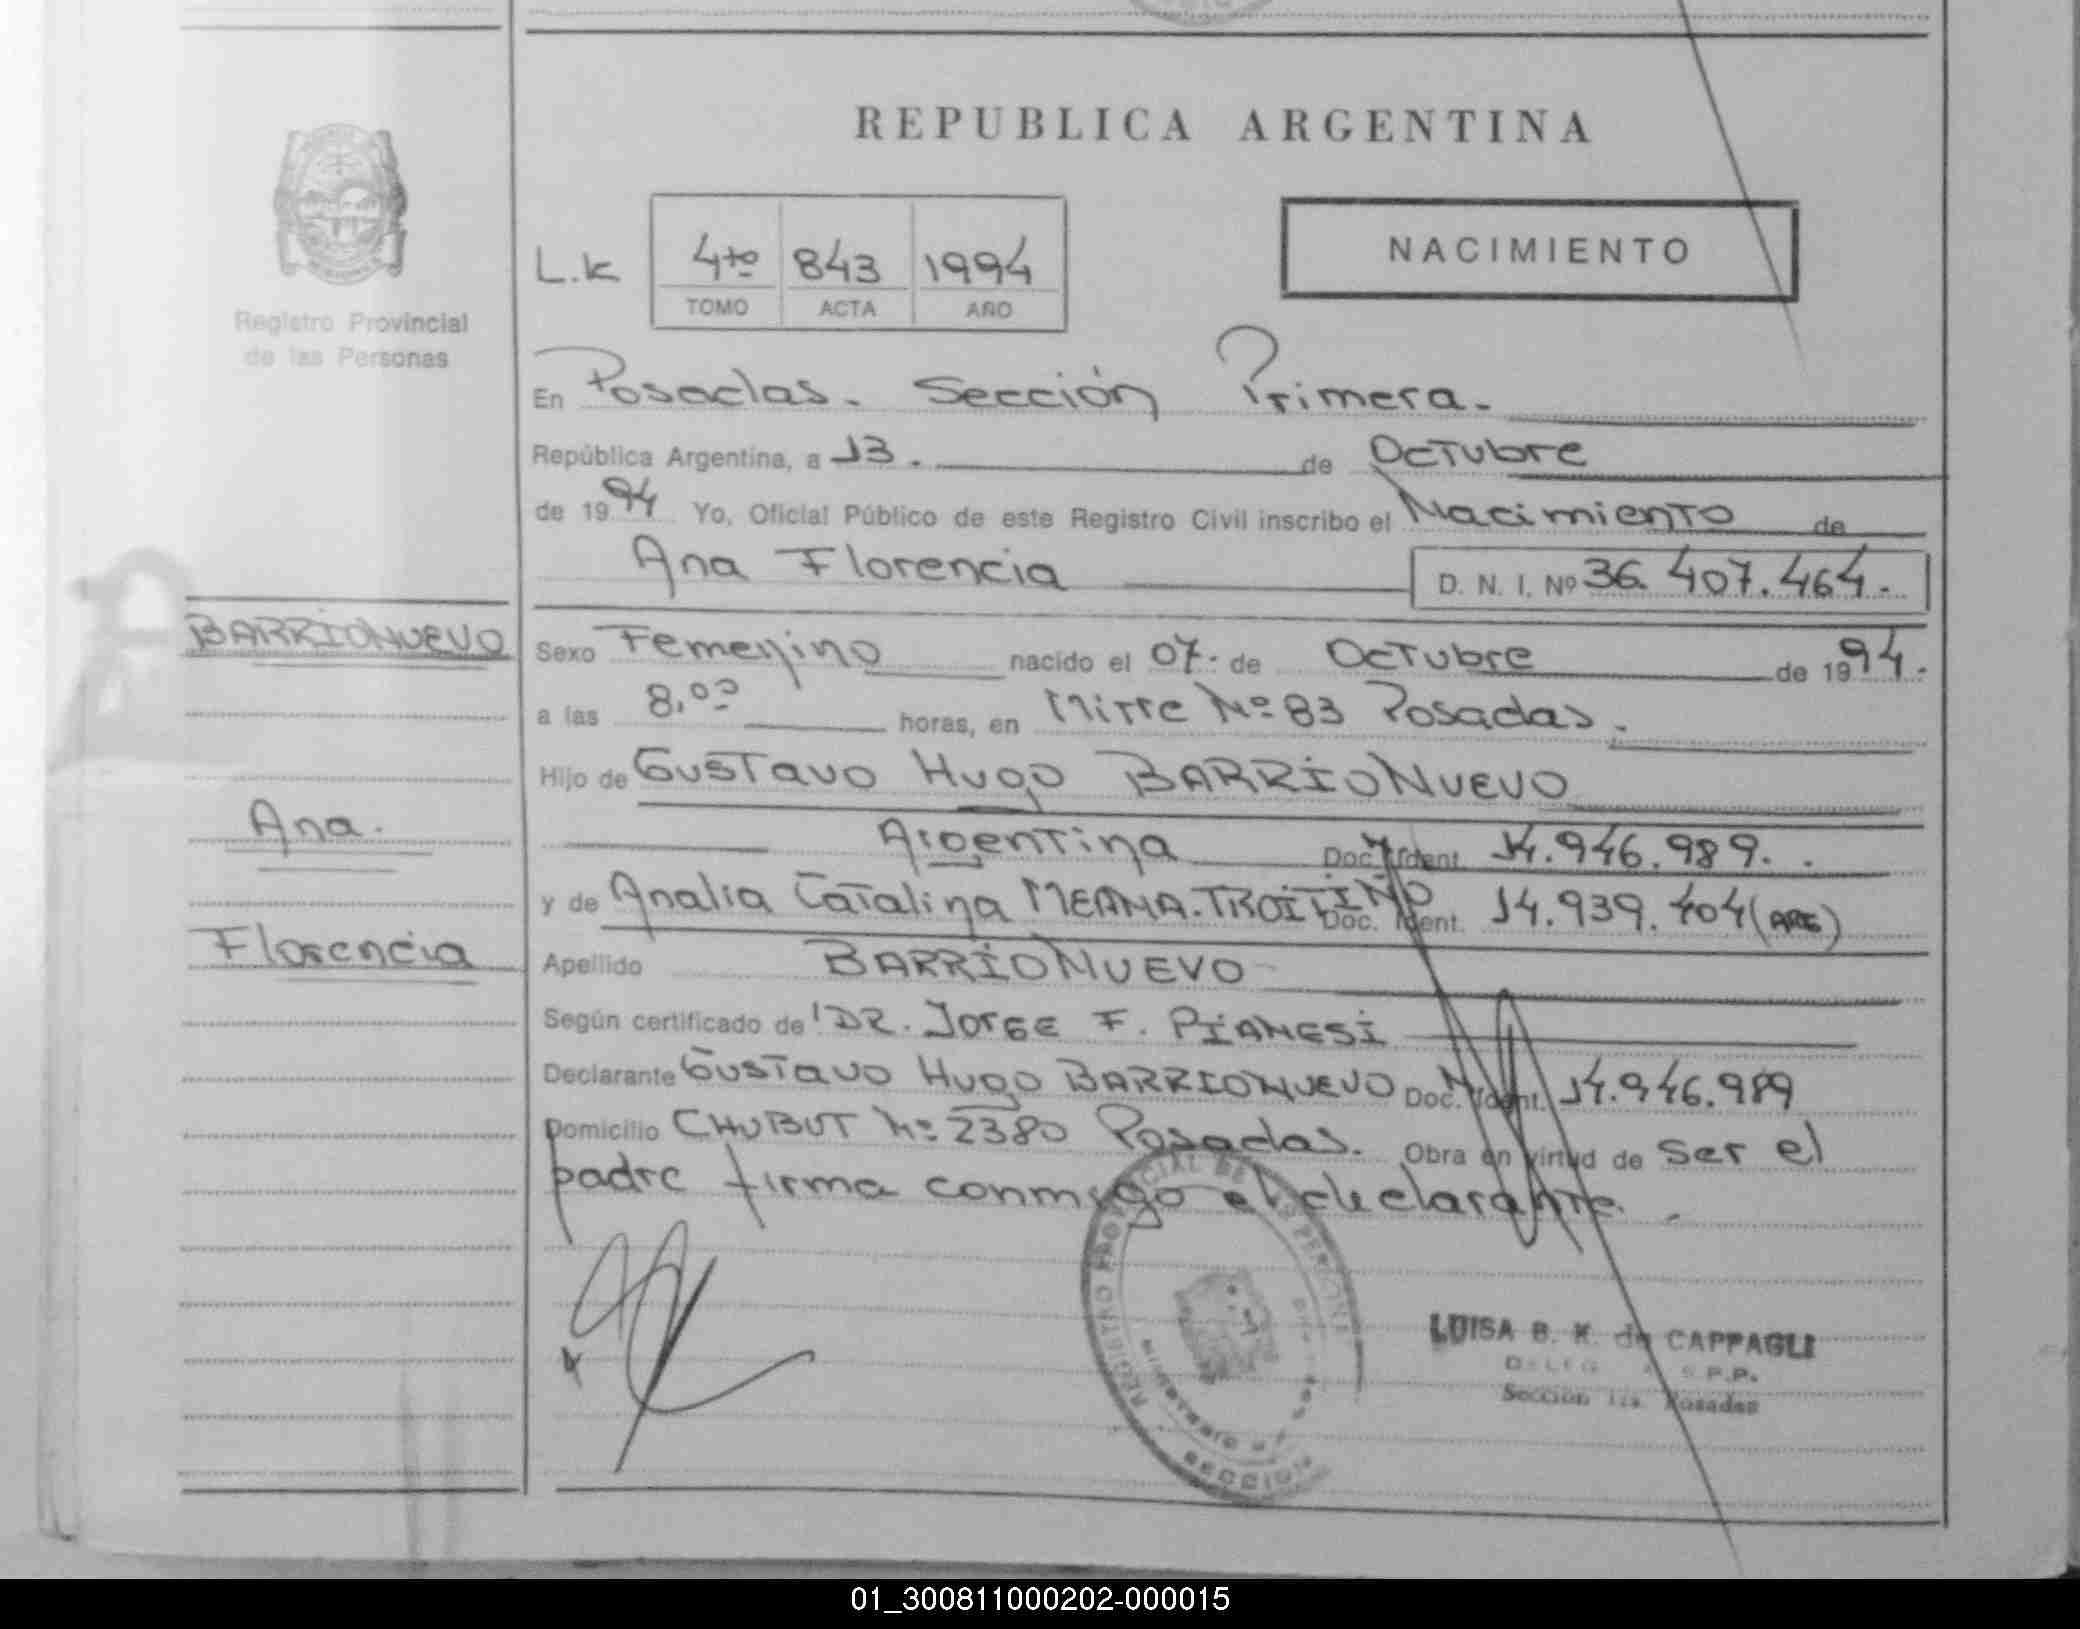 REPUBLICA ARGENTINA
Registro Provincial
de las Personas
L.K 4to 843 1994
TOMO ACTA AÑO
NACIMIENTO
En Posadas. Sección Primera.
República Argentina, a 13. de Octubre
de 1994 Yo, Oficial Público de este Registro Civil inscribo el Nacimiento de
Ana Florencia D. N. I. Nº 36.407.464.
BARRIONUEVO
Sexo Femenino nacido el 07. de Octubre de 1994.
a las 8,00 horas, en Mitre Nº 83 Posadas.
Hijo de Gustavo Hugo BARRIONUEVO
Ana.
Argentina Doc. Ident. 14.946.989.
y de Analia Catalina MEANA.TROITIÑO Doc. Ident. 14.939.404 (ARG)
Florencia
Apellido BARRIONUEVO
Según certificado de DR. Jorge F. PIANESI
Declarante Gustavo Hugo BARRIONUEVO Doc. Ident. 14.946.989
Domicilio CHUBUT Nº 2380 Posadas. Obra en virtud de ser el
padre firma conmigo el declarante.
REGISTRO PROVINCIAL DE LAS PERSONAS
SECCION
LUISA B. K. de CAPPAGLI
Sección 1ra. Posadas
01_300811000202-000015